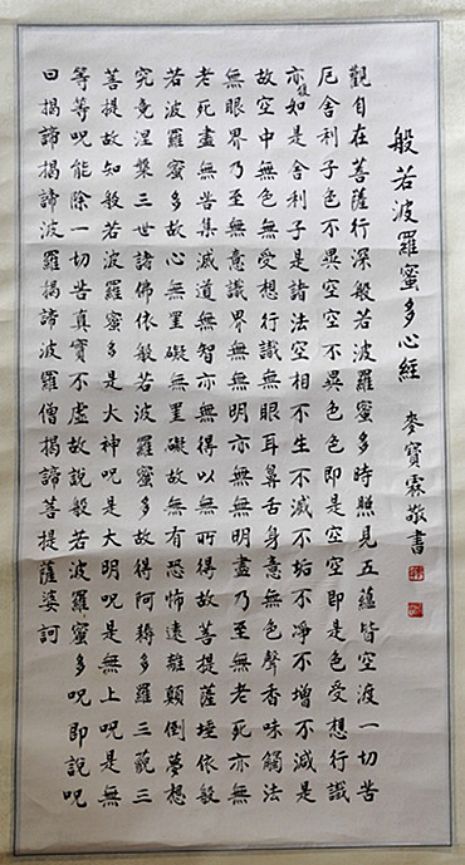 般若波羅蜜多心經 麥寶霖敬書
觀自在菩薩行深般若波羅蜜多時照見五蘊皆空渡一切苦
厄舍利子色不異空空不異色色即是空空即是色受想行識
亦復如是舍利子是諸法空相不生不滅不垢不淨不增不減是
故空中無色無受想行識無眼耳鼻舌身意無色聲香味觸法
無眼界乃至無意識界無無明亦無無明盡乃至無老死亦無
老死盡無苦集滅道無智亦無得以無所得故菩提薩埵依般
若波羅蜜多故心無罣礙無罣礙故無有恐怖遠離顛倒夢想
究竟涅槃三世諸佛依般若波羅蜜多故得阿耨多羅三藐三
菩提故知般若波羅蜜多是大神呪是大明呪是無上呪是無
等等呪能除一切苦真實不虛故說般若波羅蜜多呪即說呪
曰揭諦揭諦波羅揭諦波羅僧揭諦菩提薩婆訶